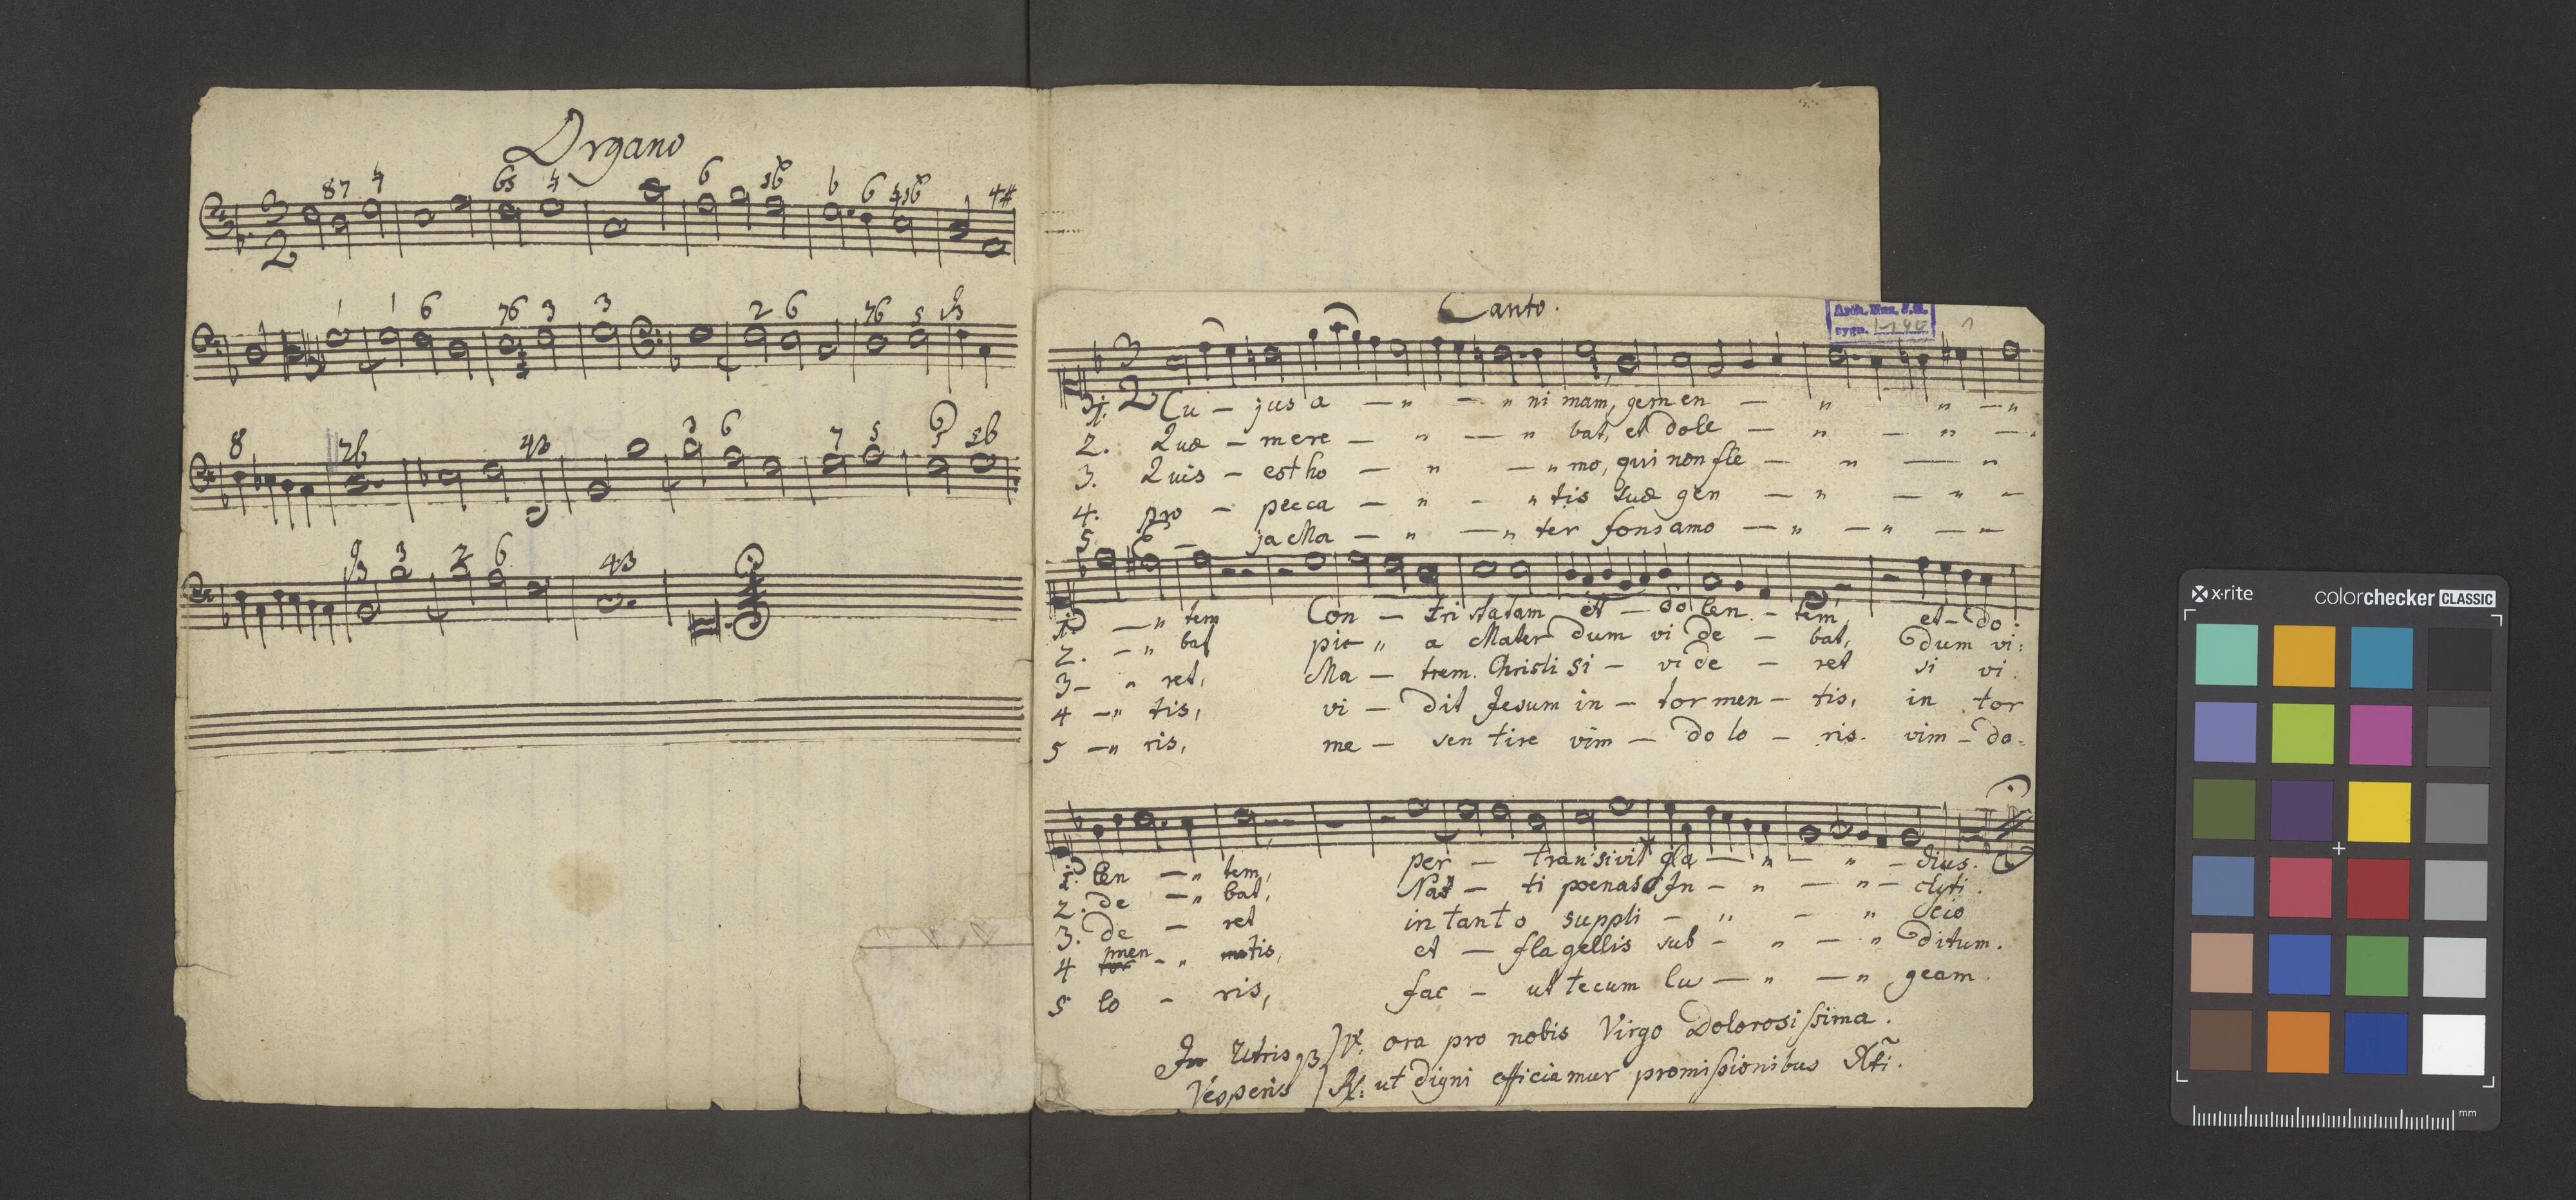 Organo
3
2
87 4 65 4 6 6 6 4#
6 76 3 3 2 6 76 5
8 76 43 6 7 5 6
3 6 43
Canto.
3
2
1. Cu - jus a - „ - „ ni mam, gem en - „ „ - „
2. Quæ - mere - „ - „ bat, et dole - „ - „ -
3. Quis - est ho - „ - „ mo, qui non fle - „ - „
4. pro - pecca - „ - „ tis suæ gen - „ - „ -
5. - ja Ma - „ - „ ter fons amo - „ - „ - -
1. - „ tem Con - tri statam et - do len - tem, et - do:
2. - „ bat pi - „ a Mater dum vi de - bat, dum vi:
3 - „ ret, Ma - trem. Christi si - vi de - ret si vi.
4 - „ tis, vi - dit Jesum in - tor men - tis, in tor
5 - „ ris, me - sen tire vim - do lo - ris. vim - do-
1. len - „ tem, per - transivit gla - „ - „ - dius.
2. de - „ bat, Na - ti poenas In - „ - „ - clyti.
3. de - ret in tanto suppli - „ - „ cio
4 men - „ tis, et - flagellis sub - „ - „ ditum.
5 lo - ris, fac - ut tecum lu - „ - „ geam.
℣. ora pro nobis Virgo Dolorosissima.
Vesperis ℟: ut digni efficiamur promissionibus Xti.
x·rite colorchecker CLASSIC
mm